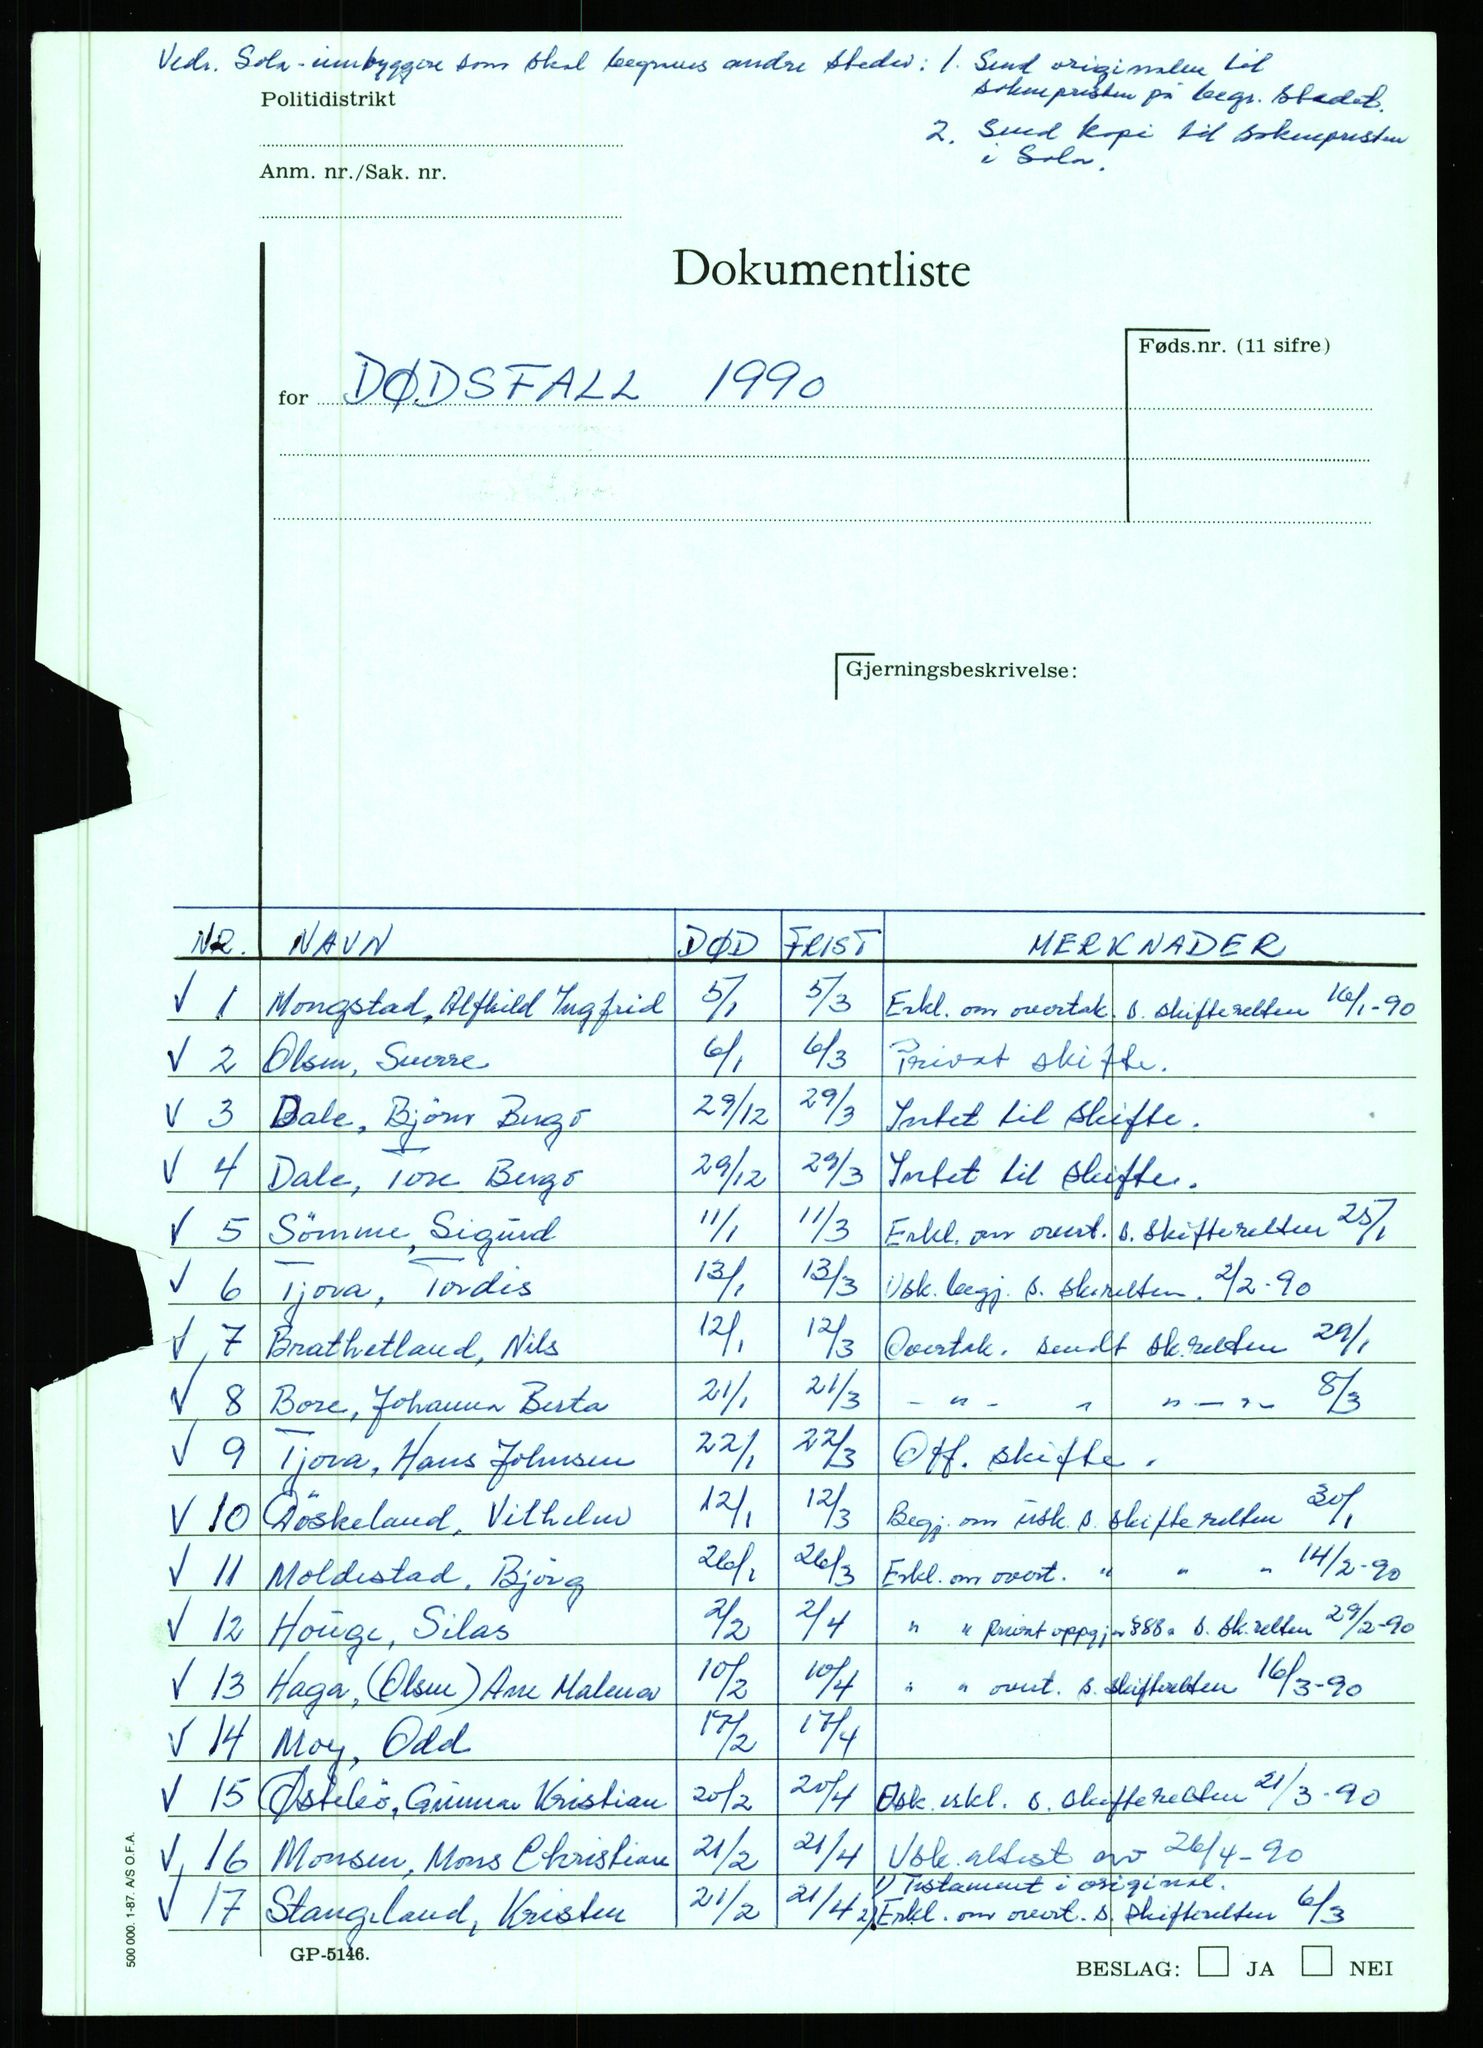 Vedr. Sola-innbyggere som skal begraves andre steder: 1. Send originalen til
soknepresten på begr. stedet.
2. Send kopi til soknepresten
i Sola.
Politidistrikt
Anm. nr./Sak. nr.
Dokumentliste
Føds.nr. (11 sifre)
for DØDSFALL 1990
Gjerningsbeskrivelse:
NR. NAVN DØD FRIST MERKNADER
V 1 Mongstad, Alfhild Ingfrid 5/1 5/3 Erkl. om overtak. s. skifteretten 16/1-90
V 2 Olsen, Sverre 6/1 6/3 Privat skifte.
V 3 Dale, Björn Bergö 29/12 29/3 Intet til skifte.
V 4 Dale, Tore Bergö 29/12 29/3 Intet til skifte.
V 5 Sömme, Sigurd 11/1 11/3 Erkl. om overt. s. skifteretten 25/1
V 6 Tjora, Tordis 13/1 13/3 Usk. begj. s. sk.retten. 2/2-90
V 7 Brathetland, Nils 12/1 12/3 Overtak. sendt sk.retten 29/1
V 8 Bore, Johanna Berta 21/1 21/3 - " - " " - " - 8/3
V 9 Tjora, Hans Johnsen 22/1 22/3 Off. skifte.
V 10 Röskeland, Vilhelm 12/1 12/3 Begj. om usk. s. skifteretten 30/1
V 11 Moldestad, Björg 26/1 26/3 Erkl. om overt. " " " 14/2-90
V 12 Houge, Silas 2/2 2/4 " " privat oppgjør §88a s. sk.retten 29/2-90
V 13 Haga, (Olsen) Ane Malena 10/2 10/4 " " overt. s. skifteretten 16/3-90
V 14 Moy, Odd 17/2 17/4
V 15 Østebö, Gunnar Kristian 20/2 20/4 Usk. erkl. s. skifteretten 21/3-90
V 16 Monsen, Mons Christian 21/2 21/4 Usk.attest av 26/4-90
1) Testament i original.
V 17 Stangeland, Kristen 21/2 21/4 2) Erkl. om overt. s. skifteretten 6/3
500 000. 1-87. A/S O.F.A.
GP-5146.
BESLAG: JA NEI